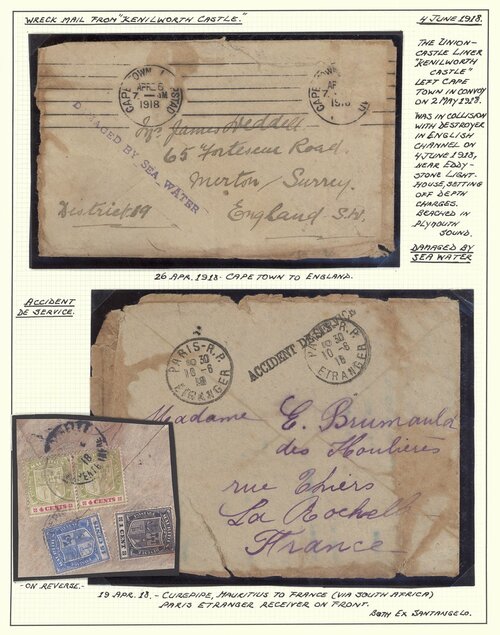 WRECK MAIL FROM "KENILWORTH CASTLE."
4 JUNE 1918.
THE UNION-
CASTLE LINER
"KENILWORTH
CASTLE"
LEFT CAPE
TOWN IN CONVOY
ON 2 MAY 1918.
WAS IN COLLISION
WITH DESTROYER
IN ENGLISH
CHANNEL ON
4 JUNE 1918,
NEAR EDDY-
STONE LIGHT-
HOUSE, SETTING
OFF DEPTH
CHARGES.
BEACHED IN
PLYMOUTH
SOUND.
DAMAGED BY
SEA WATER
CAPE TOWN
1918
CAPE TOWN
1918
DAMAGED BY SEA WATER
Mrs James Weddell
65 Fortescue Road.
Merton / Surrey.
District 19
England. S.W.
26 APR. 1918. CAPE TOWN TO ENGLAND.
ACCIDENT
DE SERVICE.
PARIS-R.P.
10 30
10-6
18
ETRANGER
ACCIDENT DE SERVICE
PARIS-R.P.
10 30
10-6
18
ETRANGER
Madame E. Brumauld
des Houlieres
rue Thiers
La Rochell
France
4 CENTS
4 CENTS
-ON REVERSE.-
19 APR. 18. - CUREPIPE, MAURITIUS TO FRANCE (VIA SOUTH AFRICA)
PARIS ETRANGER RECEIVER ON FRONT.
BOTH EX SANTANGELO.